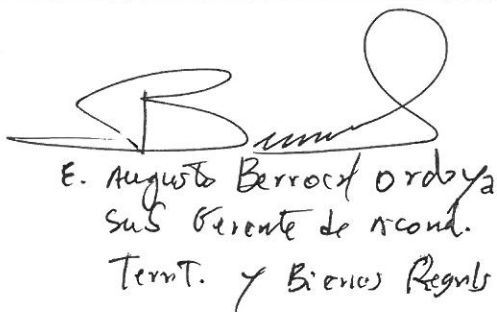 E. Augusto Berrocal Ordoya
Sub Gerente de Acond.
Territ. y Bienes Regnls